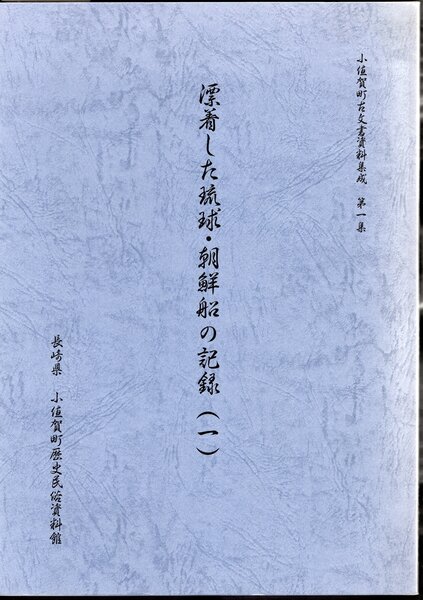 小値賀町古文書資料集成　第一集
漂着した琉球・朝鮮船の記録（一）
長崎県　小値賀町歴史民俗資料館